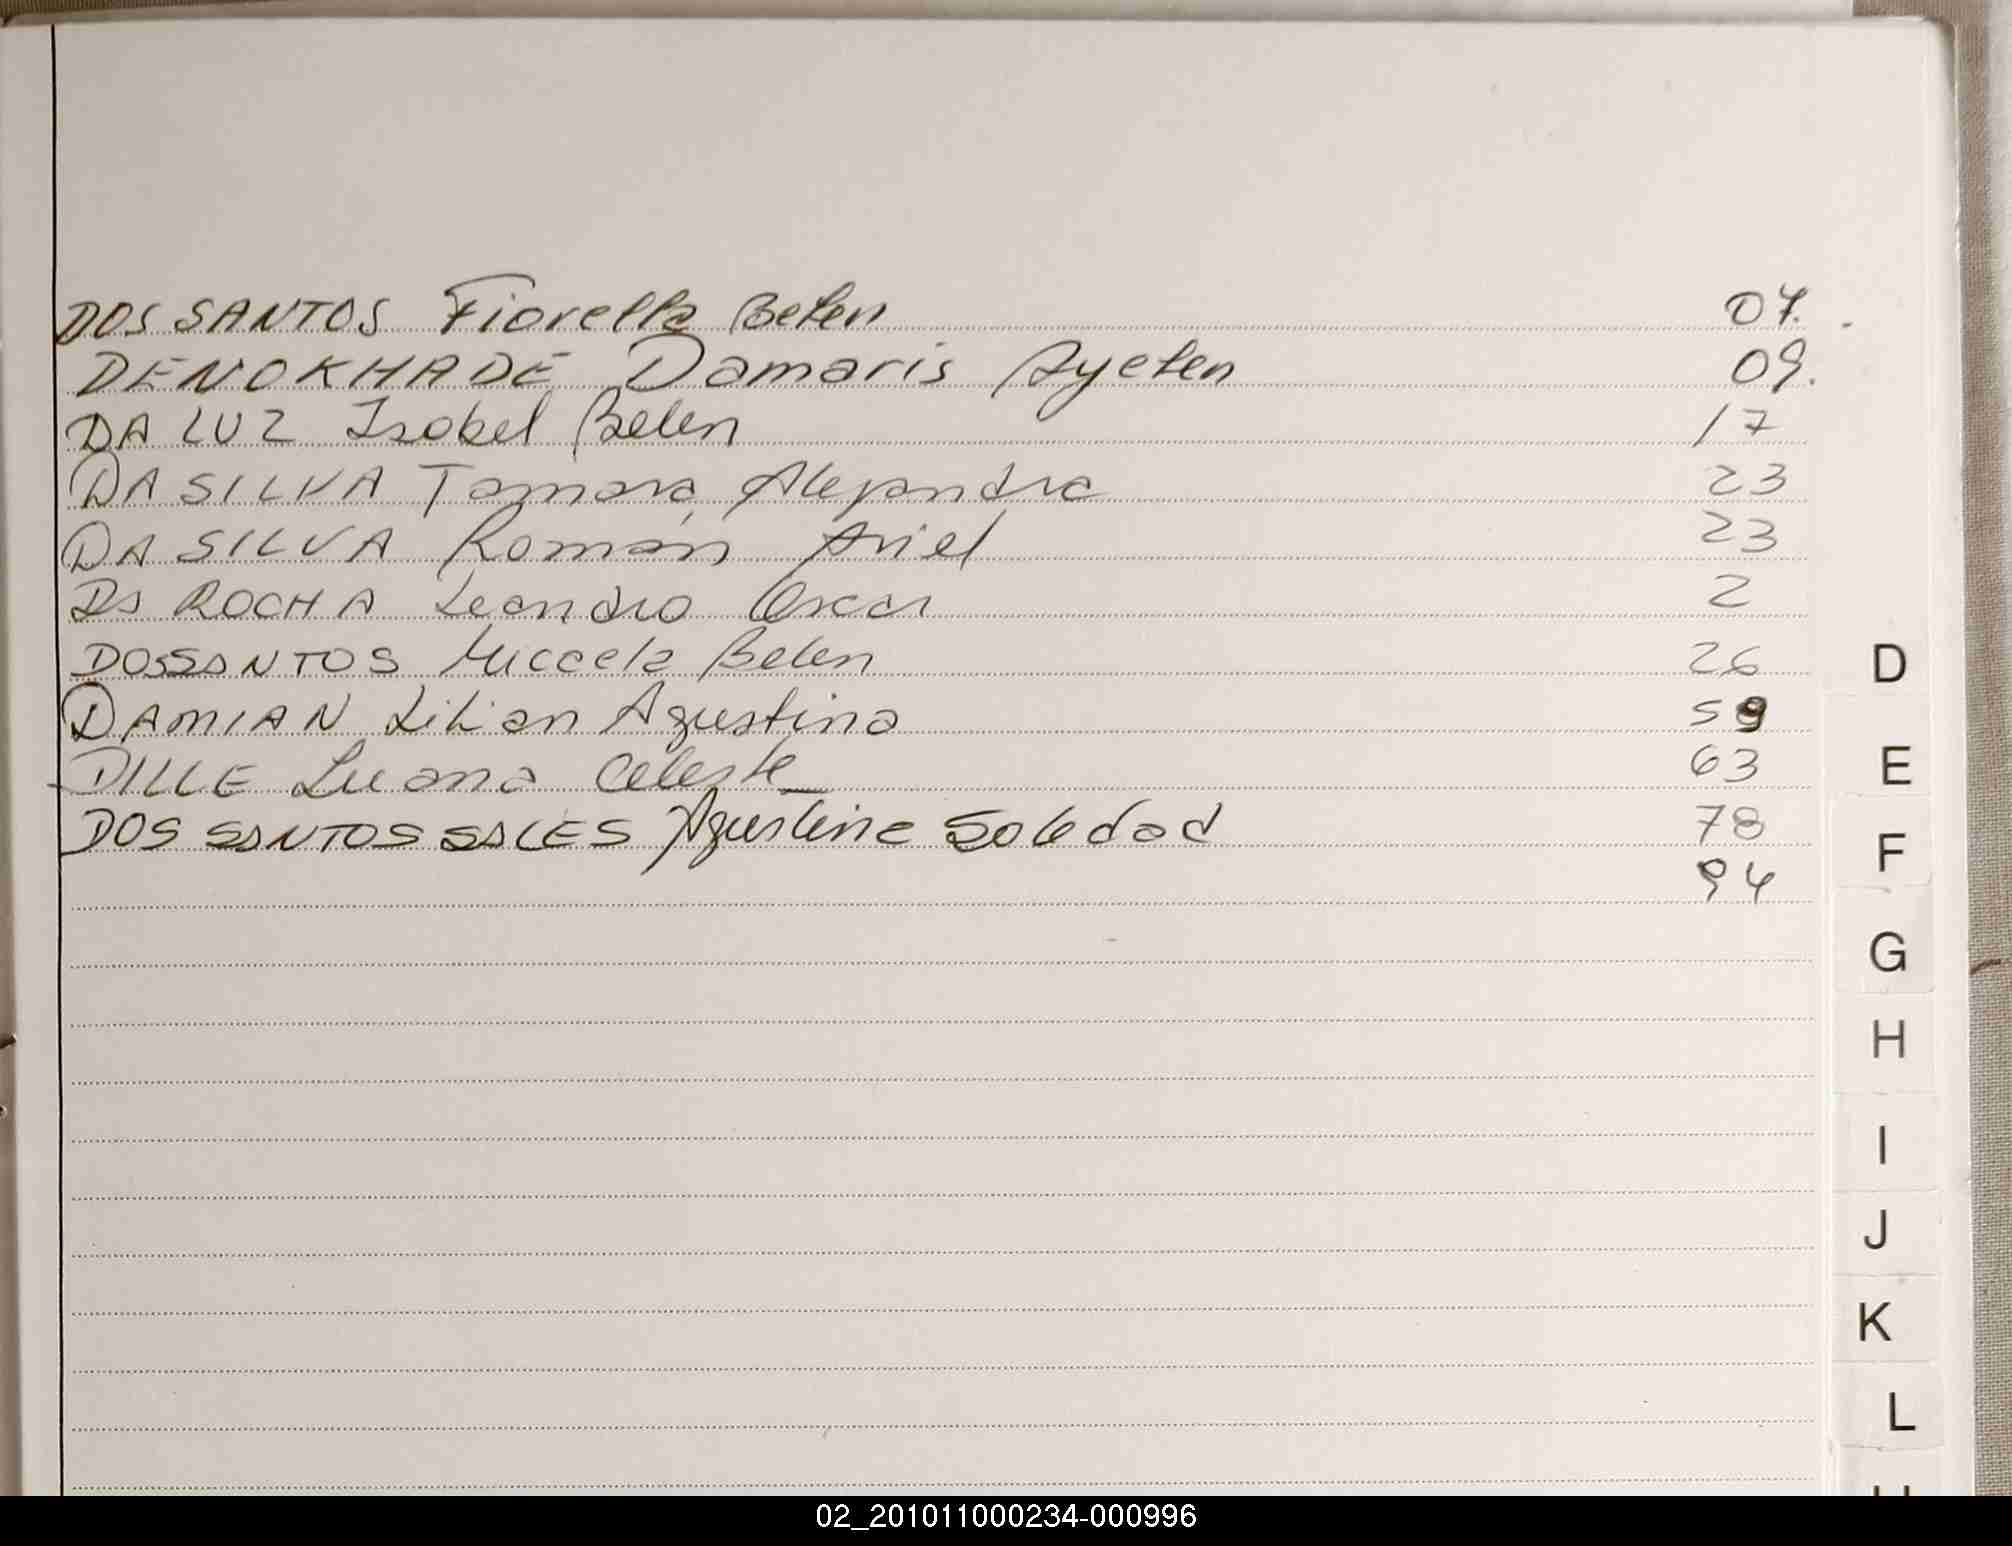 DOS SANTOS Fiorella Belen 07.
DENOKHADE Damaris Ayelen 09.
DA LUZ Isabel Belen 17
DA SILVA Tamara Alejandra 23
DA SILVA Román Ariel 23
Da ROCHA Leandro Oscar 2
DOSSANTOS Micaela Belen 26
D
DAMIAN Lilian Agustina 59
DILLE Luana Celeste 63
E
DOS SANTOS SALES Agustina Soledad 78
F
94
G
H
I
J
K
L
02_201011000234-000996